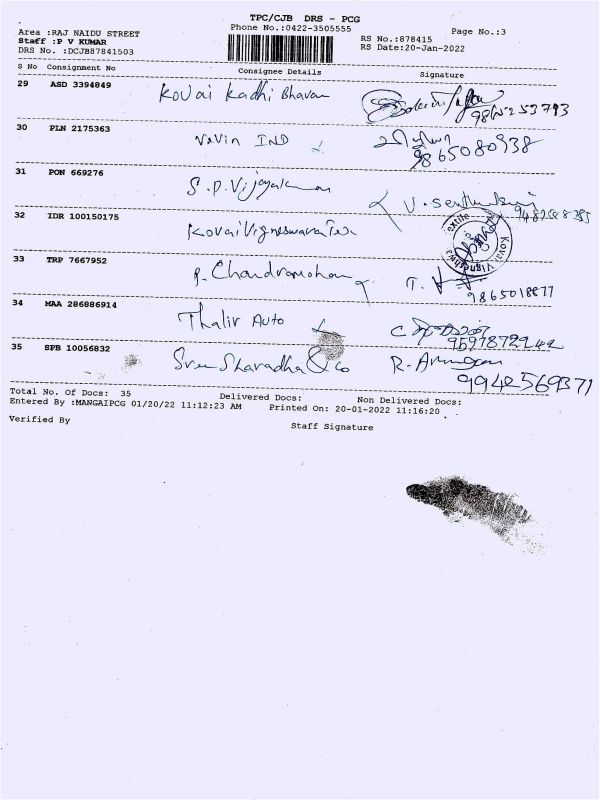 TPC/CJB DRS - PCG
Phone No.:0422-3505555
Page No.:3
Area :RAJ NAIDU STREET
Staff :P V KUMAR
DRS No. :DCJB87841503
RS No.:878415
RS Date:20-Jan-2022
S No Consignment No Consignee Details Signature
29 ASD 3394849 Kovai Kadhi Bhavan
9865253793
30 PLN 2175363 Navin IND
9865080938
31 PON 669276 S.P. Vijayakumar
32 IDR 100150175 Kovai Vigneswara Tex
33 TRP 7667952 P. Chandramohan
9865018877
34 MAA 286886914 Thalir Auto
35 SPB 10056832 Sree Sharadha & co R. Arumugam
9942569371
Total No. Of Docs: 35 Delivered Docs: Non Delivered Docs:
Entered By :MANGAIPCG 01/20/22 11:12:23 AM Printed On: 20-01-2022 11:16:20
Verified By Staff Signature